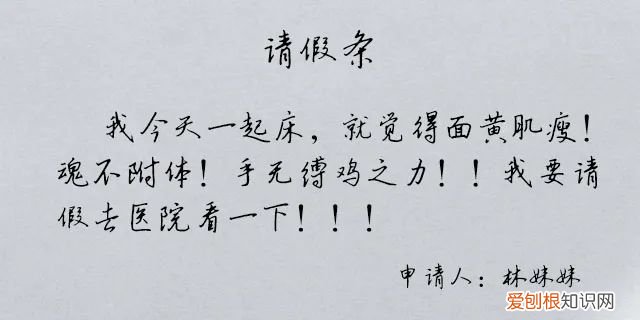 请假条
我今天一起床，就觉得面黄肌瘦！
魂不附体！手无缚鸡之力！！我要请
假去医院看一下！！！
申请人：林妹妹
爱刨根知识网